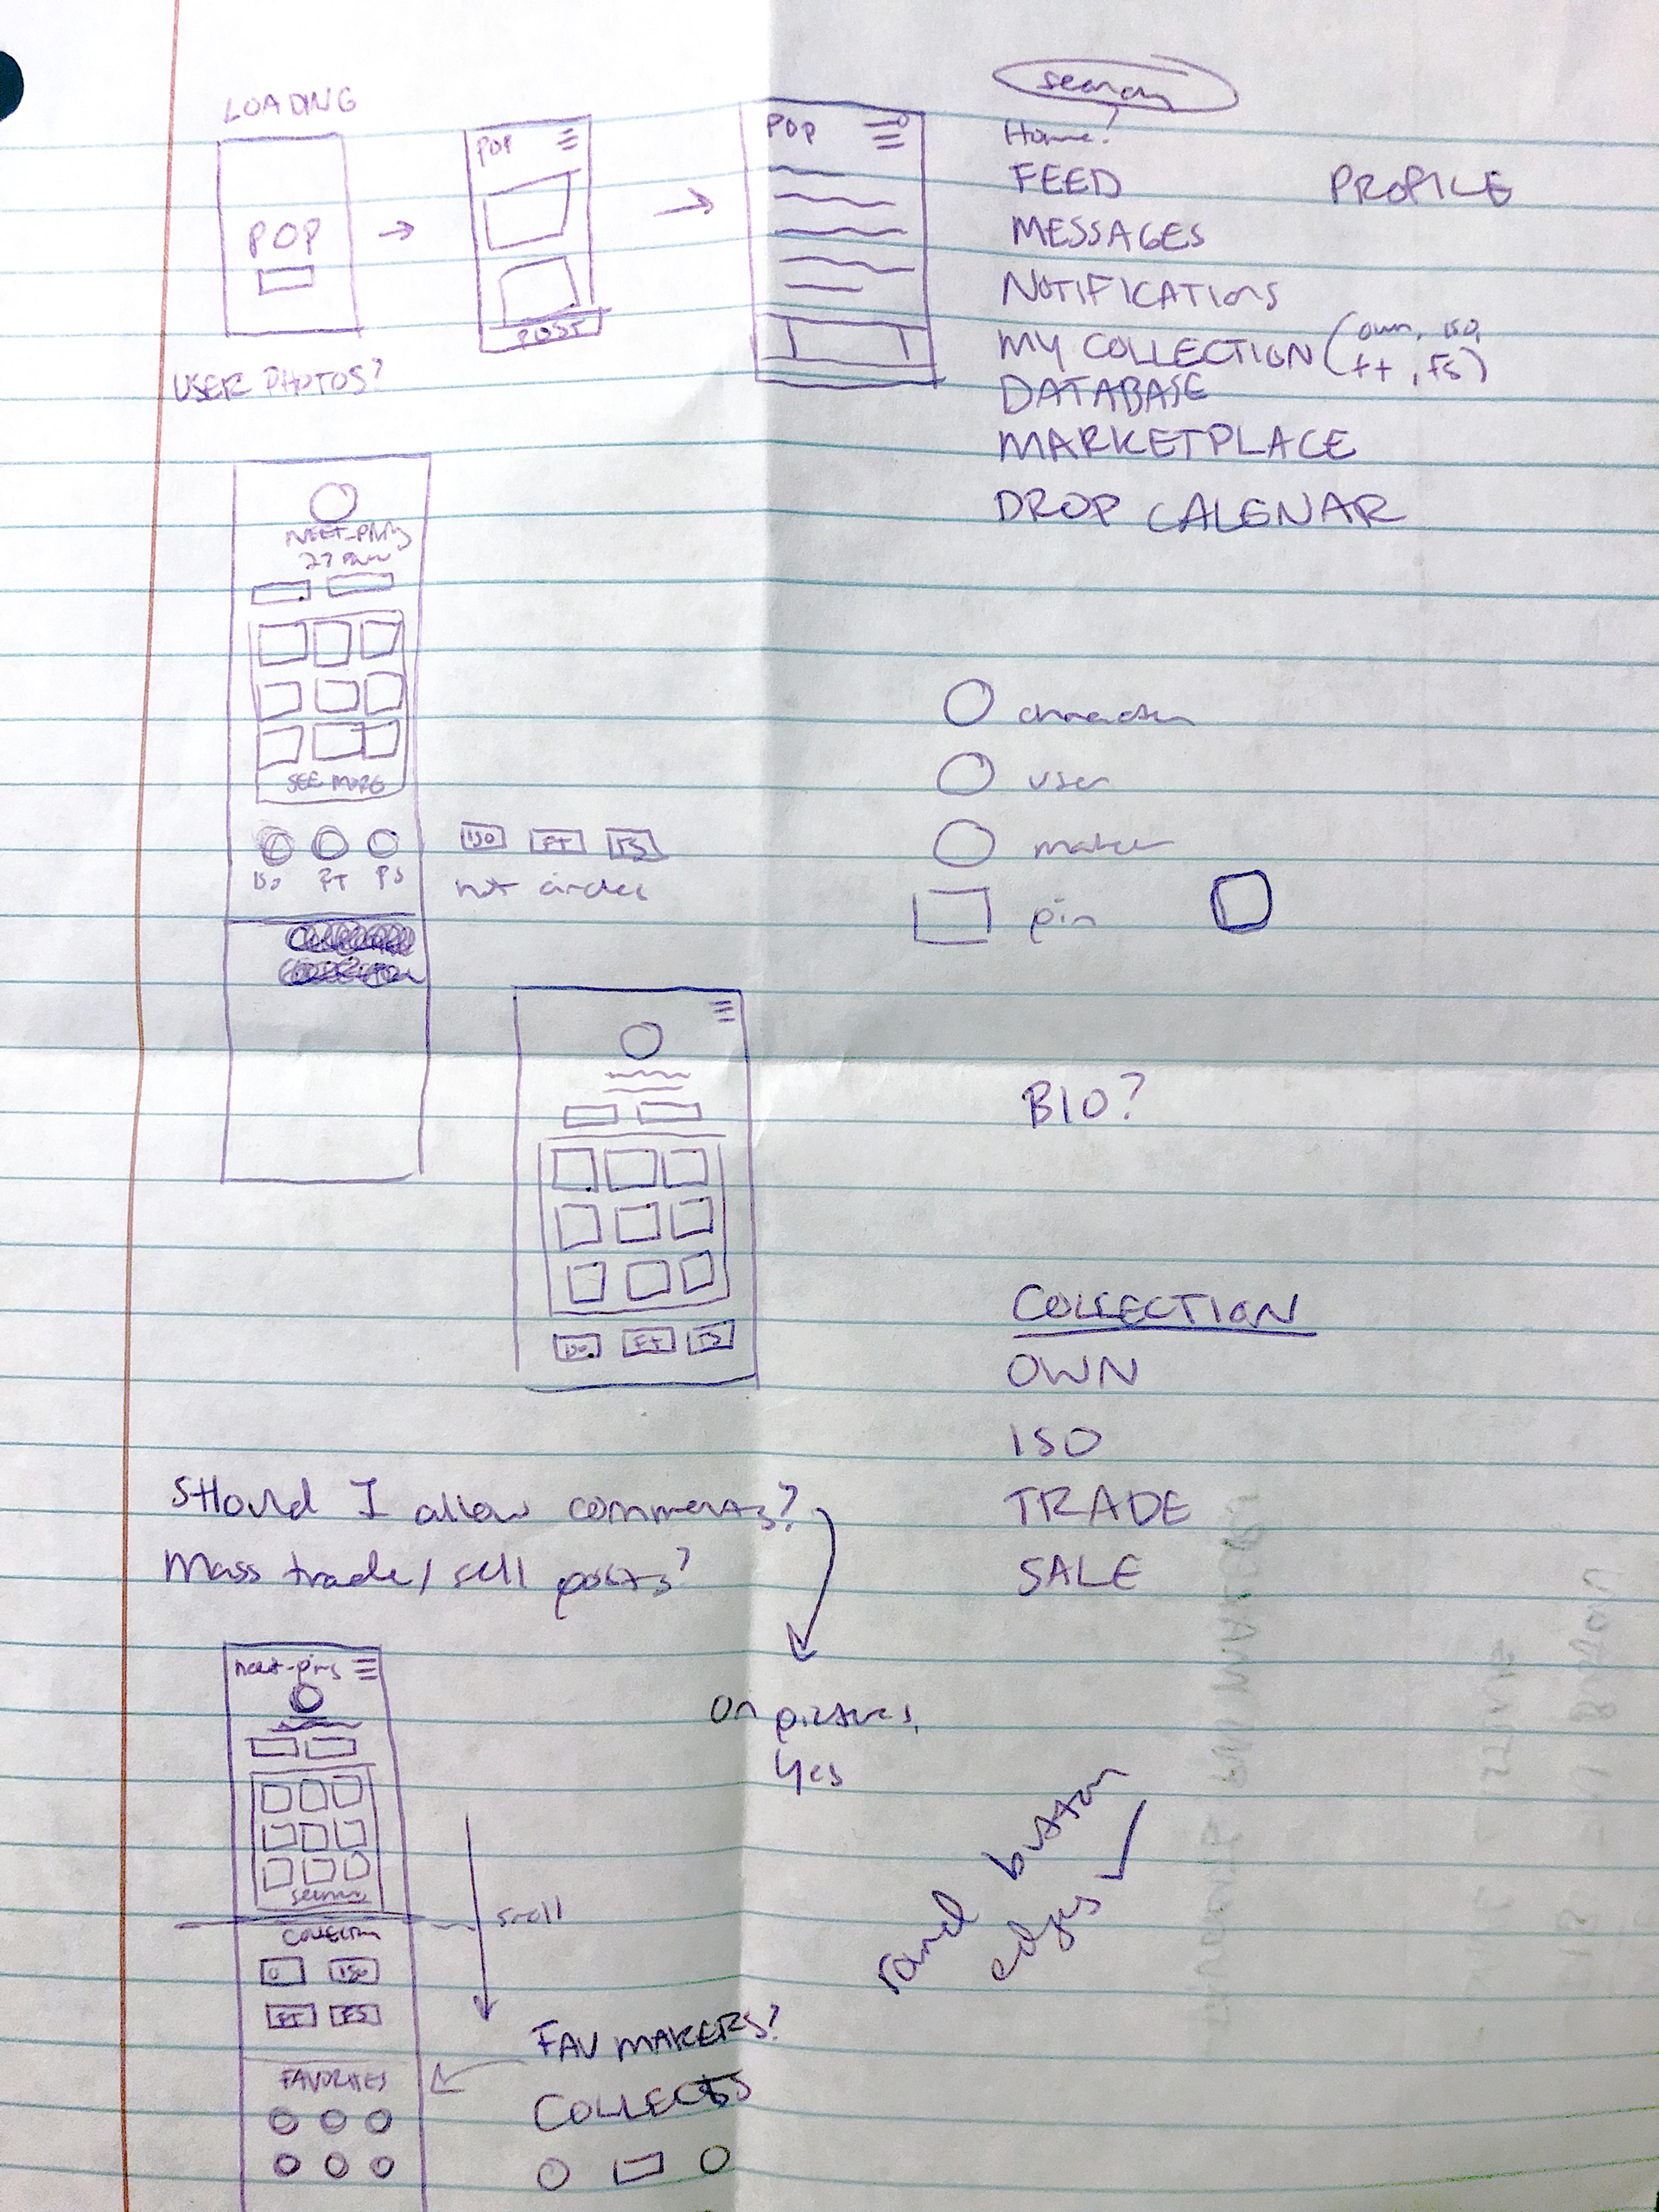 LOADING
POP
POP
POST
POP
search
Home?
FEED
PROFILE
MESSAGES
NOTIFICATIONS
MY COLLECTION (own, iso,
ft, FS)
DATABASE
MARKETPLACE
DROP CALENAR
USER PHOTOS?
SEE MORE
ISO FT FS
ISO FT FS
not circles
character
user
maker
pin
BIO?
ISO FT FS
COLLECTION
OWN
ISO
TRADE
SALE
Should I allow comments?
Mass trade/sell posts?
on pictures,
Yes
round button
edges
scroll
O ISO
FT FS
FAVORITES
FAV MAKERS?
COLLECTS